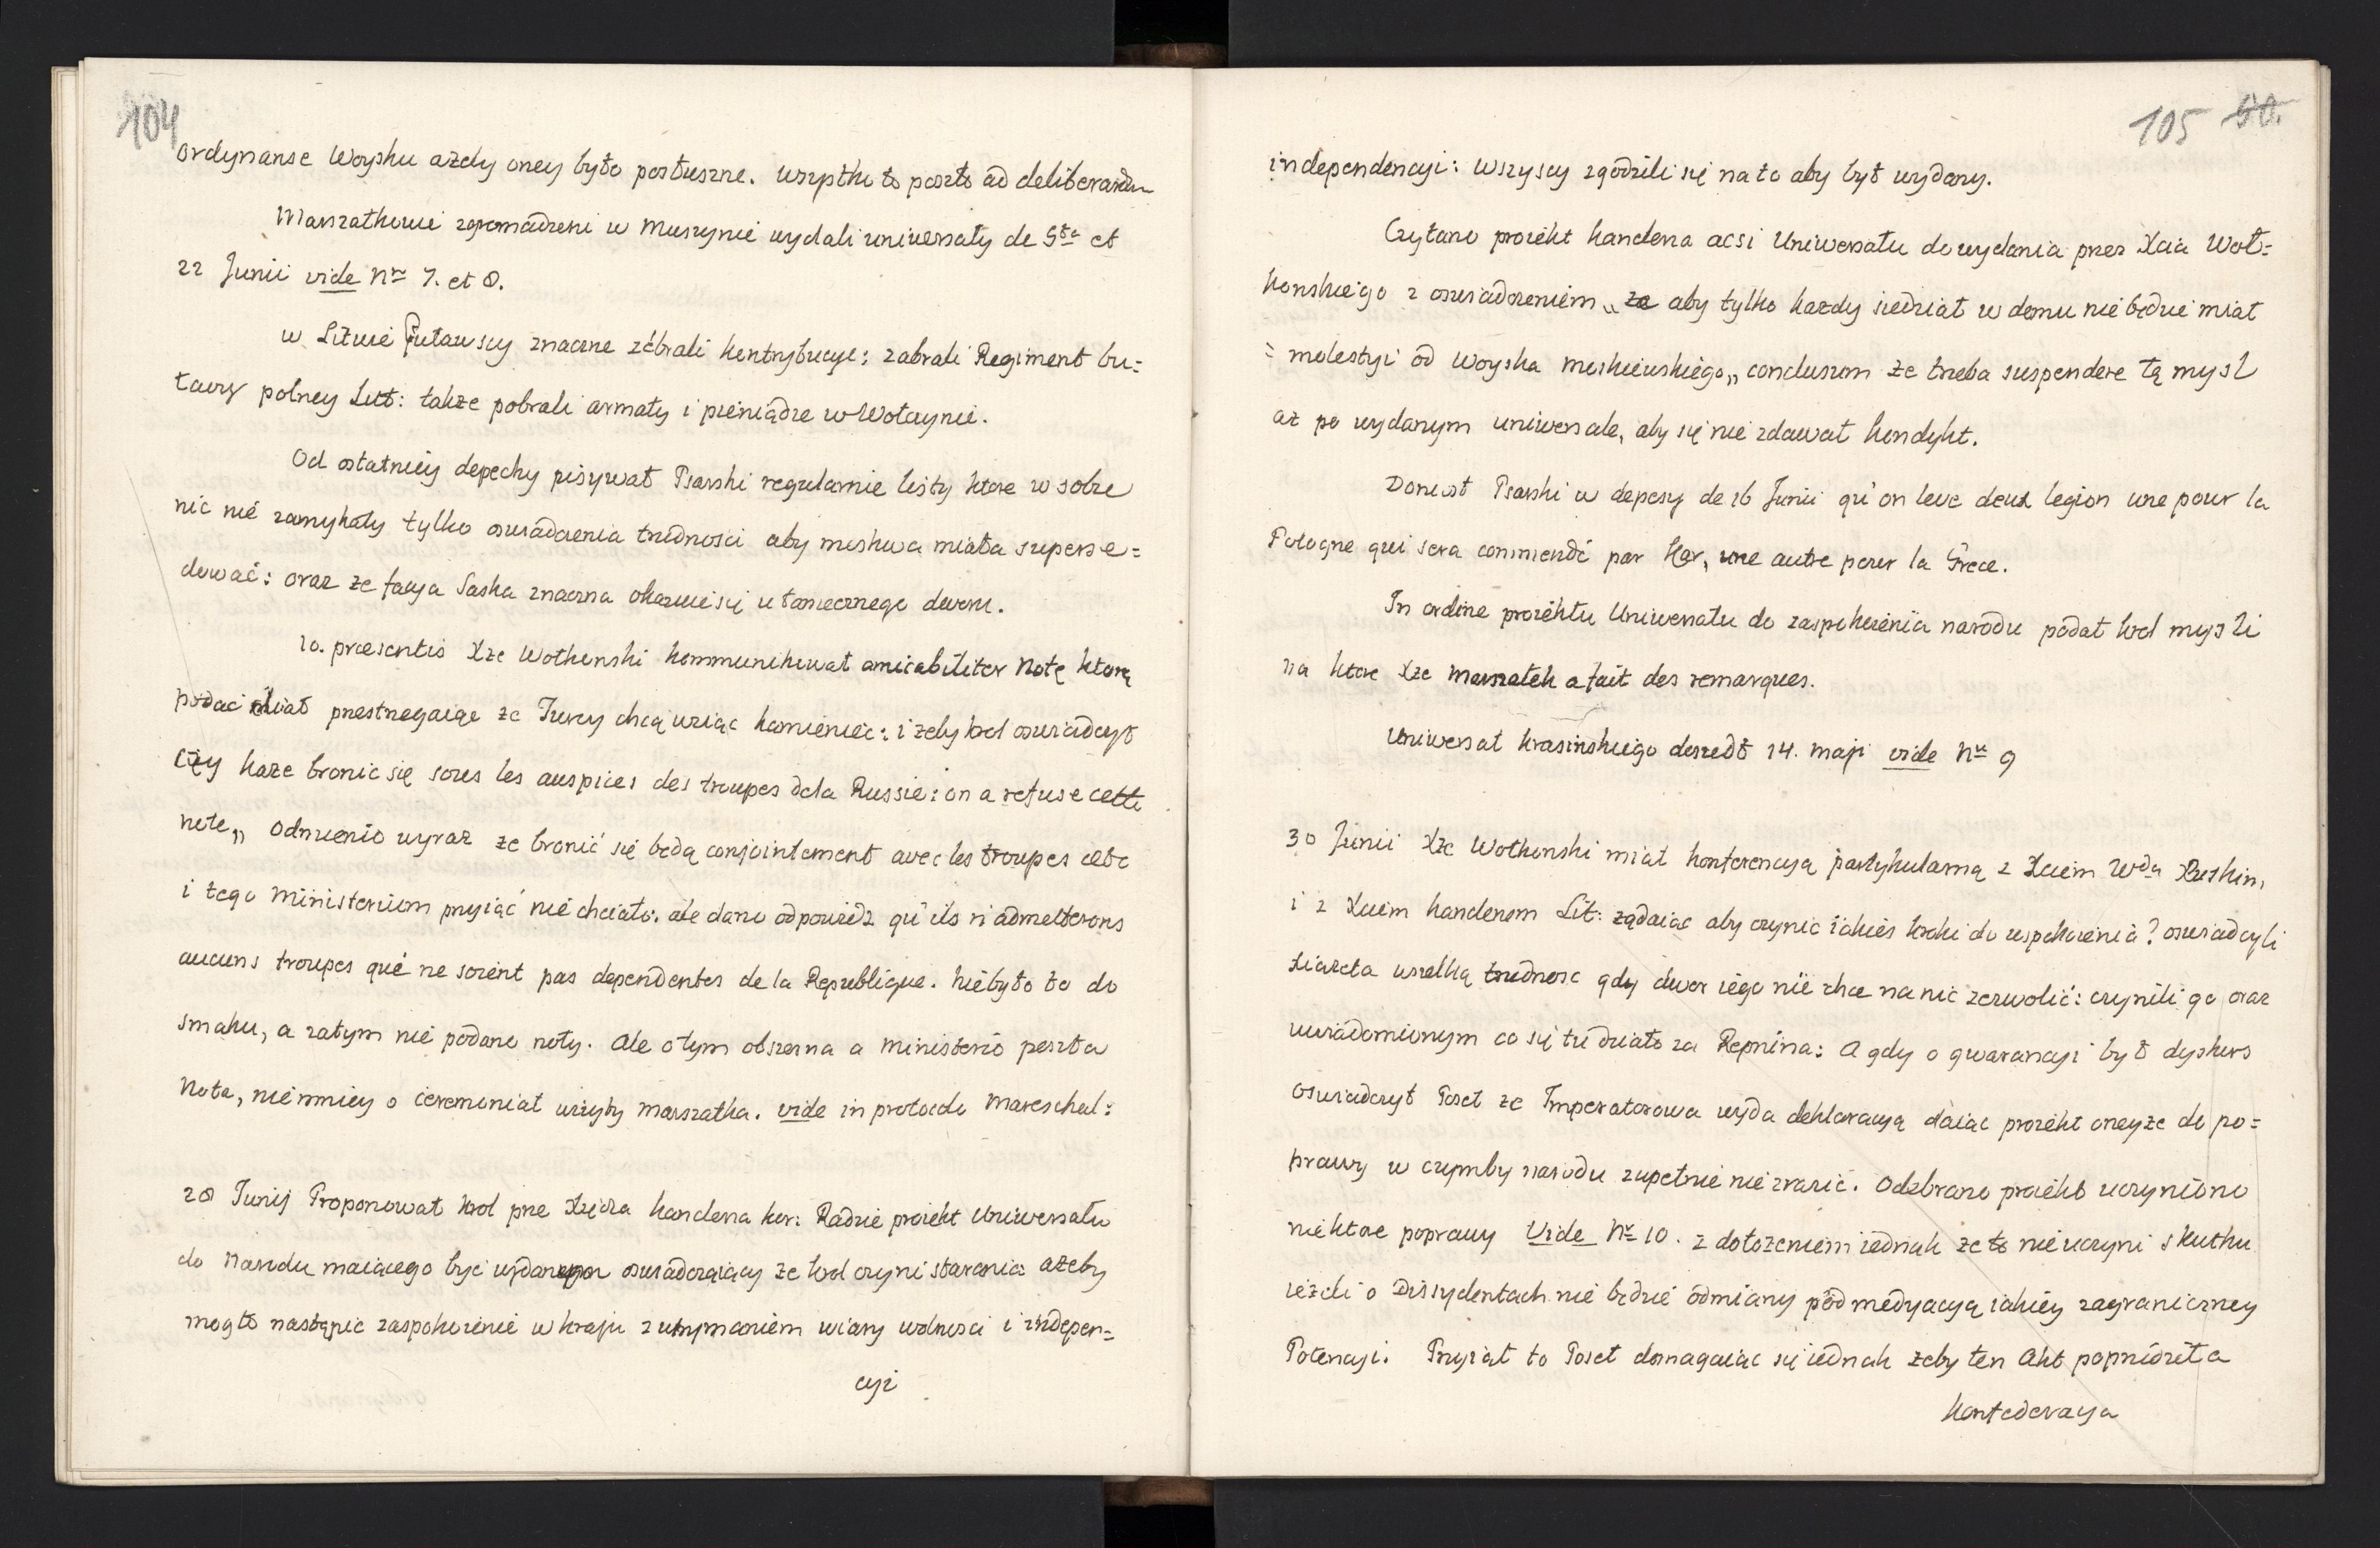 104
ordynanse Woysku ażeby oney było posłuszne. wszystko to poszło ad deliberandum
Marszałkowie zgromadzeni w Muszynie wydali uniwersały de 5ta et
22 Junii vide Nro 7. et 8.
w Litwie Puławscy znaczne zebrali kontrybucye: zabrali Regiment bu=
ławy polney Litt: także pobrali armaty i pieniądze w Wołczynie.
Od ostatniey depechy pisywał Psarski regularnie listy ktore w sobie
nic nie zamykały tylko oswiadczenia trudnosci aby moskwa miała superse=
dować: oraz ze facya Saska znaczna okazuie się u tamecznego dworu.
20. praesentis Xze Wołkonski kommunikował amicabiliter Notę ktorą
podać miał przestrzegaiąc ze Turcy chcą wziąc kamieniec: i zeby krol oswiadczył
Czy każe bronic się sous les auspices des troupes de la Russie: on a refuse cette
note„ odmienio wyraz ze bronić się będą conjointement avec les troupes cete
i tego ministerium przyiąć nie chciało: ale dano odpowiedz qu'ils n'admetterons
aucuns troupes qué ne soient pas dependentes de la Republique. niebyło to do
smaku, a zatym nie podano noty. Ale o tym obszerna a ministerio poszła
Nota, niemniey o ceremoniał wizyty marszałka. vide in protocolo mareschal:
28 Junij Proponował krol prze Xiędza kanclerza kor: Radzie proiekt Uniwersału
do Narodu maiącego byc wydanego oswiadczaiący ze krol czyni starania ażeby
mogło nastąpic zaspokoienie w kraju z utrzymaniem wiary wolnosci i indepen=
cyi
105 50.
independencyi: wszyscy zgodzili się na to aby był wydany.
Czytano proiekt kanclerza acsi Uniwersału do wydania przez Xcia Woł=
konskiego z oswiadczeniem „ze aby tylko kazdy siedział w domu nie będzie miał
= molestyi od woyska moskiewskiego„ conclusum że trzeba suspendere tą mysl
aż po wydanym uniwersale, aby się nie zdawał kondykt.
Doniosł Psarski w depeszy de 16 Junii qu'on leve deux legion une pour la
Pologne qui sera commendé par Kar, une autre pour la Grece.
In ordine proiektu Uniwersału do zaspokoienia narodu podał krol mysli
na ktore Xze marszałek a fait des remarques.
Uniwersał krasinskiego doszedł 14. maji vide Nro 9
30 Junii Xze Wołkonski miał konferencyą partykularną z Xciem Wda Ruskim,
i z Xciem kanclerzem Lit: żądaiąc aby czynic iakies kroki do uspokoienia? oswiadczyli
Xiazeta wszelką trudnosc gdy dwor iego nie chce na nic zezwolić: czynili go oraz
uwiadomionym co się tu działo za Repnina: A gdy o gwarancyi był dyskurs
oswiadczył Poseł ze Imperatorowa wyda deklaracyą daiąc proiekt oneyże do po=
prawy w czymby narodu zupełnie nie zrazić. Odebrano proiekt uczyniono
niektore poprawy Vide Nro 10. z dołożeniem iednak że to nie uczyni skutku
ieżeli o Dissydentach nie będzie odmiany pod medyacyą iakiey zagraniczney
Potencyi. Przyiał to Poseł domagaiąc się iednak żeby ten Akt poprzedziła
konfederacya